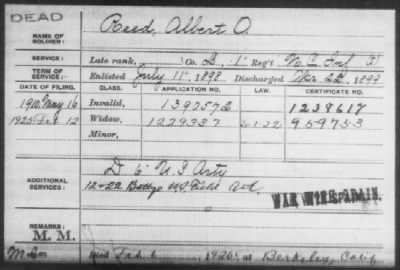 DEAD
NAME OF SOLDIER: Reed, Albert O.
SERVICE: Late rank, Co. D, 1" Reg't N. C. Inf
TERM OF SERVICE: Enlisted July 11", 1898 Discharged 22, 1899
DATE OF FILING. CLASS. APPLICATION NO. LAW. CERTIFICATE NO.
1910. May. 16 Invalid, 1390572 1239617
1925. Feb. 12 Widow, 1229337 S-1-22 959753
Minor,
ADDITIONAL SERVICES: D 6" U S Arty
12 & 22 Battys U.S. Field Art.
WAR WITH SPAIN.
REMARKS:
M. M.
Died Feb 6, 1925, at Berkeley, Calif